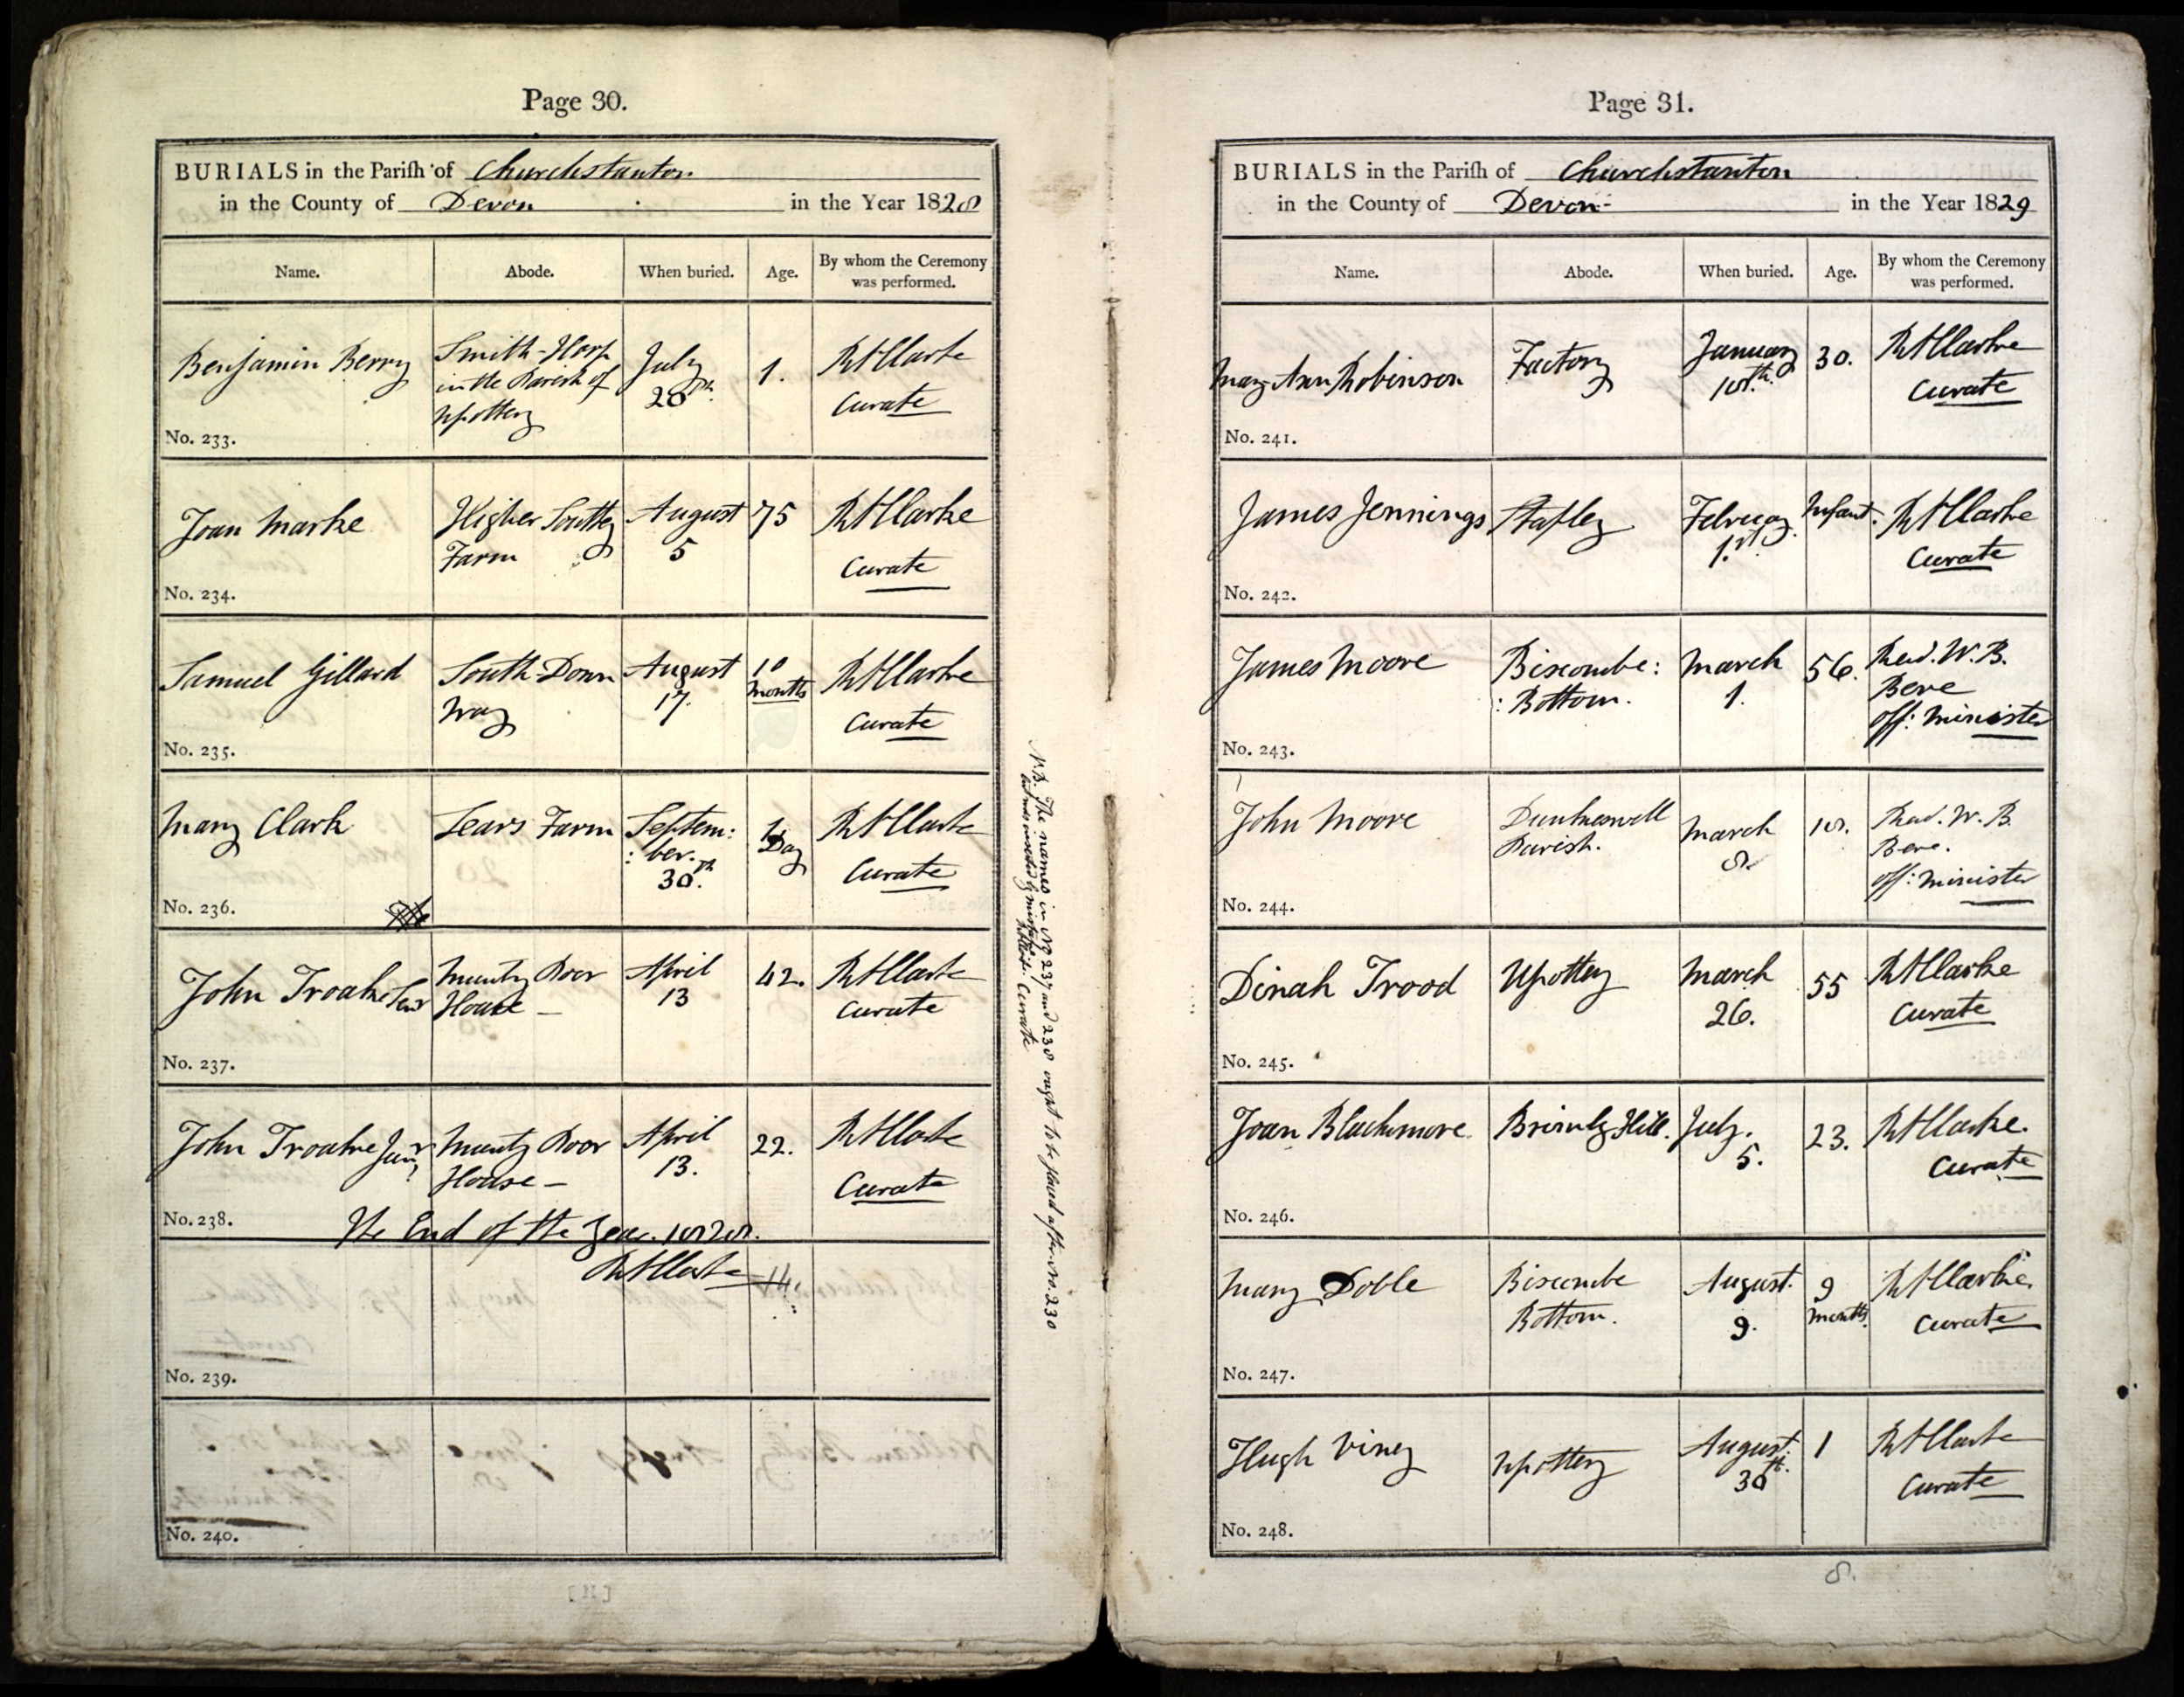 Page 30.
BURIALS in the Parish of Churchstanton
in the County of Devon in the Year 1828
Name. Abode. When buried. Age. By whom the Ceremony was performed.
Benjamin Berry
Smith-Harp
in the Parish of
Upottery
July
28th.
1.
RHClarke
Curate
No. 233.
Joan Marke
Higher Southey
Farm
August
5
75
RHClarke
Curate
No. 234.
Samuel Gillard
South-Down
Way
August
17.
10
Months
RHClarke
Curate
No. 235.
Mary Clark
Lears Farm
Septem:
: ber.
30th.
1
Day
RHClarke
Curate
No. 236.
John Troake Senr
Munty Poor
House —
April
13
42.
RHClarke
Curate
No. 237.
John Troake Junr
Munty Poor
House —
April
13.
22.
RHClarke
Curate
No. 238.
The End of the Year. 1828.
RHClarke
14.
No. 239.
No. 240.
N.B. The names in No. 237 and 238 ought to be placed after No. 230
but was inserted by mistake.
RHClarke. Curate
Page 31.
BURIALS in the Parish of Churchstanton
in the County of Devon- in the Year 1829
Name. Abode. When buried. Age. By whom the Ceremony was performed.
Mary Ann Robinson
Factory
January
18th.
30.
RHClarke
Curate
No. 241.
James Jennings
Stapley
February.
1.st
Infant.
RHClarke
Curate
No. 242.
James Moore
Biscombe:
: Bottom.
March
1.
56.
Revd. W. B.
Bere
off: Minister
No. 243.
John Moore
Dunkeswell
Parish.
March
8.
18.
Revd. W. B.
Bere.
off: Minister
No. 244.
Dinah Trood
Upottery
March
26.
55
RHClarke
Curate
No. 245.
Joan Blackmore
Brimly Hill.
July.
5.
23.
RHClarke.
Curate
No. 246.
Mary Doble
Biscombe
Bottom.
August.
9.
9
Months.
RHClarke.
Curate
No. 247.
Hugh Viney
Upottery
August.
30th.
1
RHClarke
Curate
No. 248.
8.